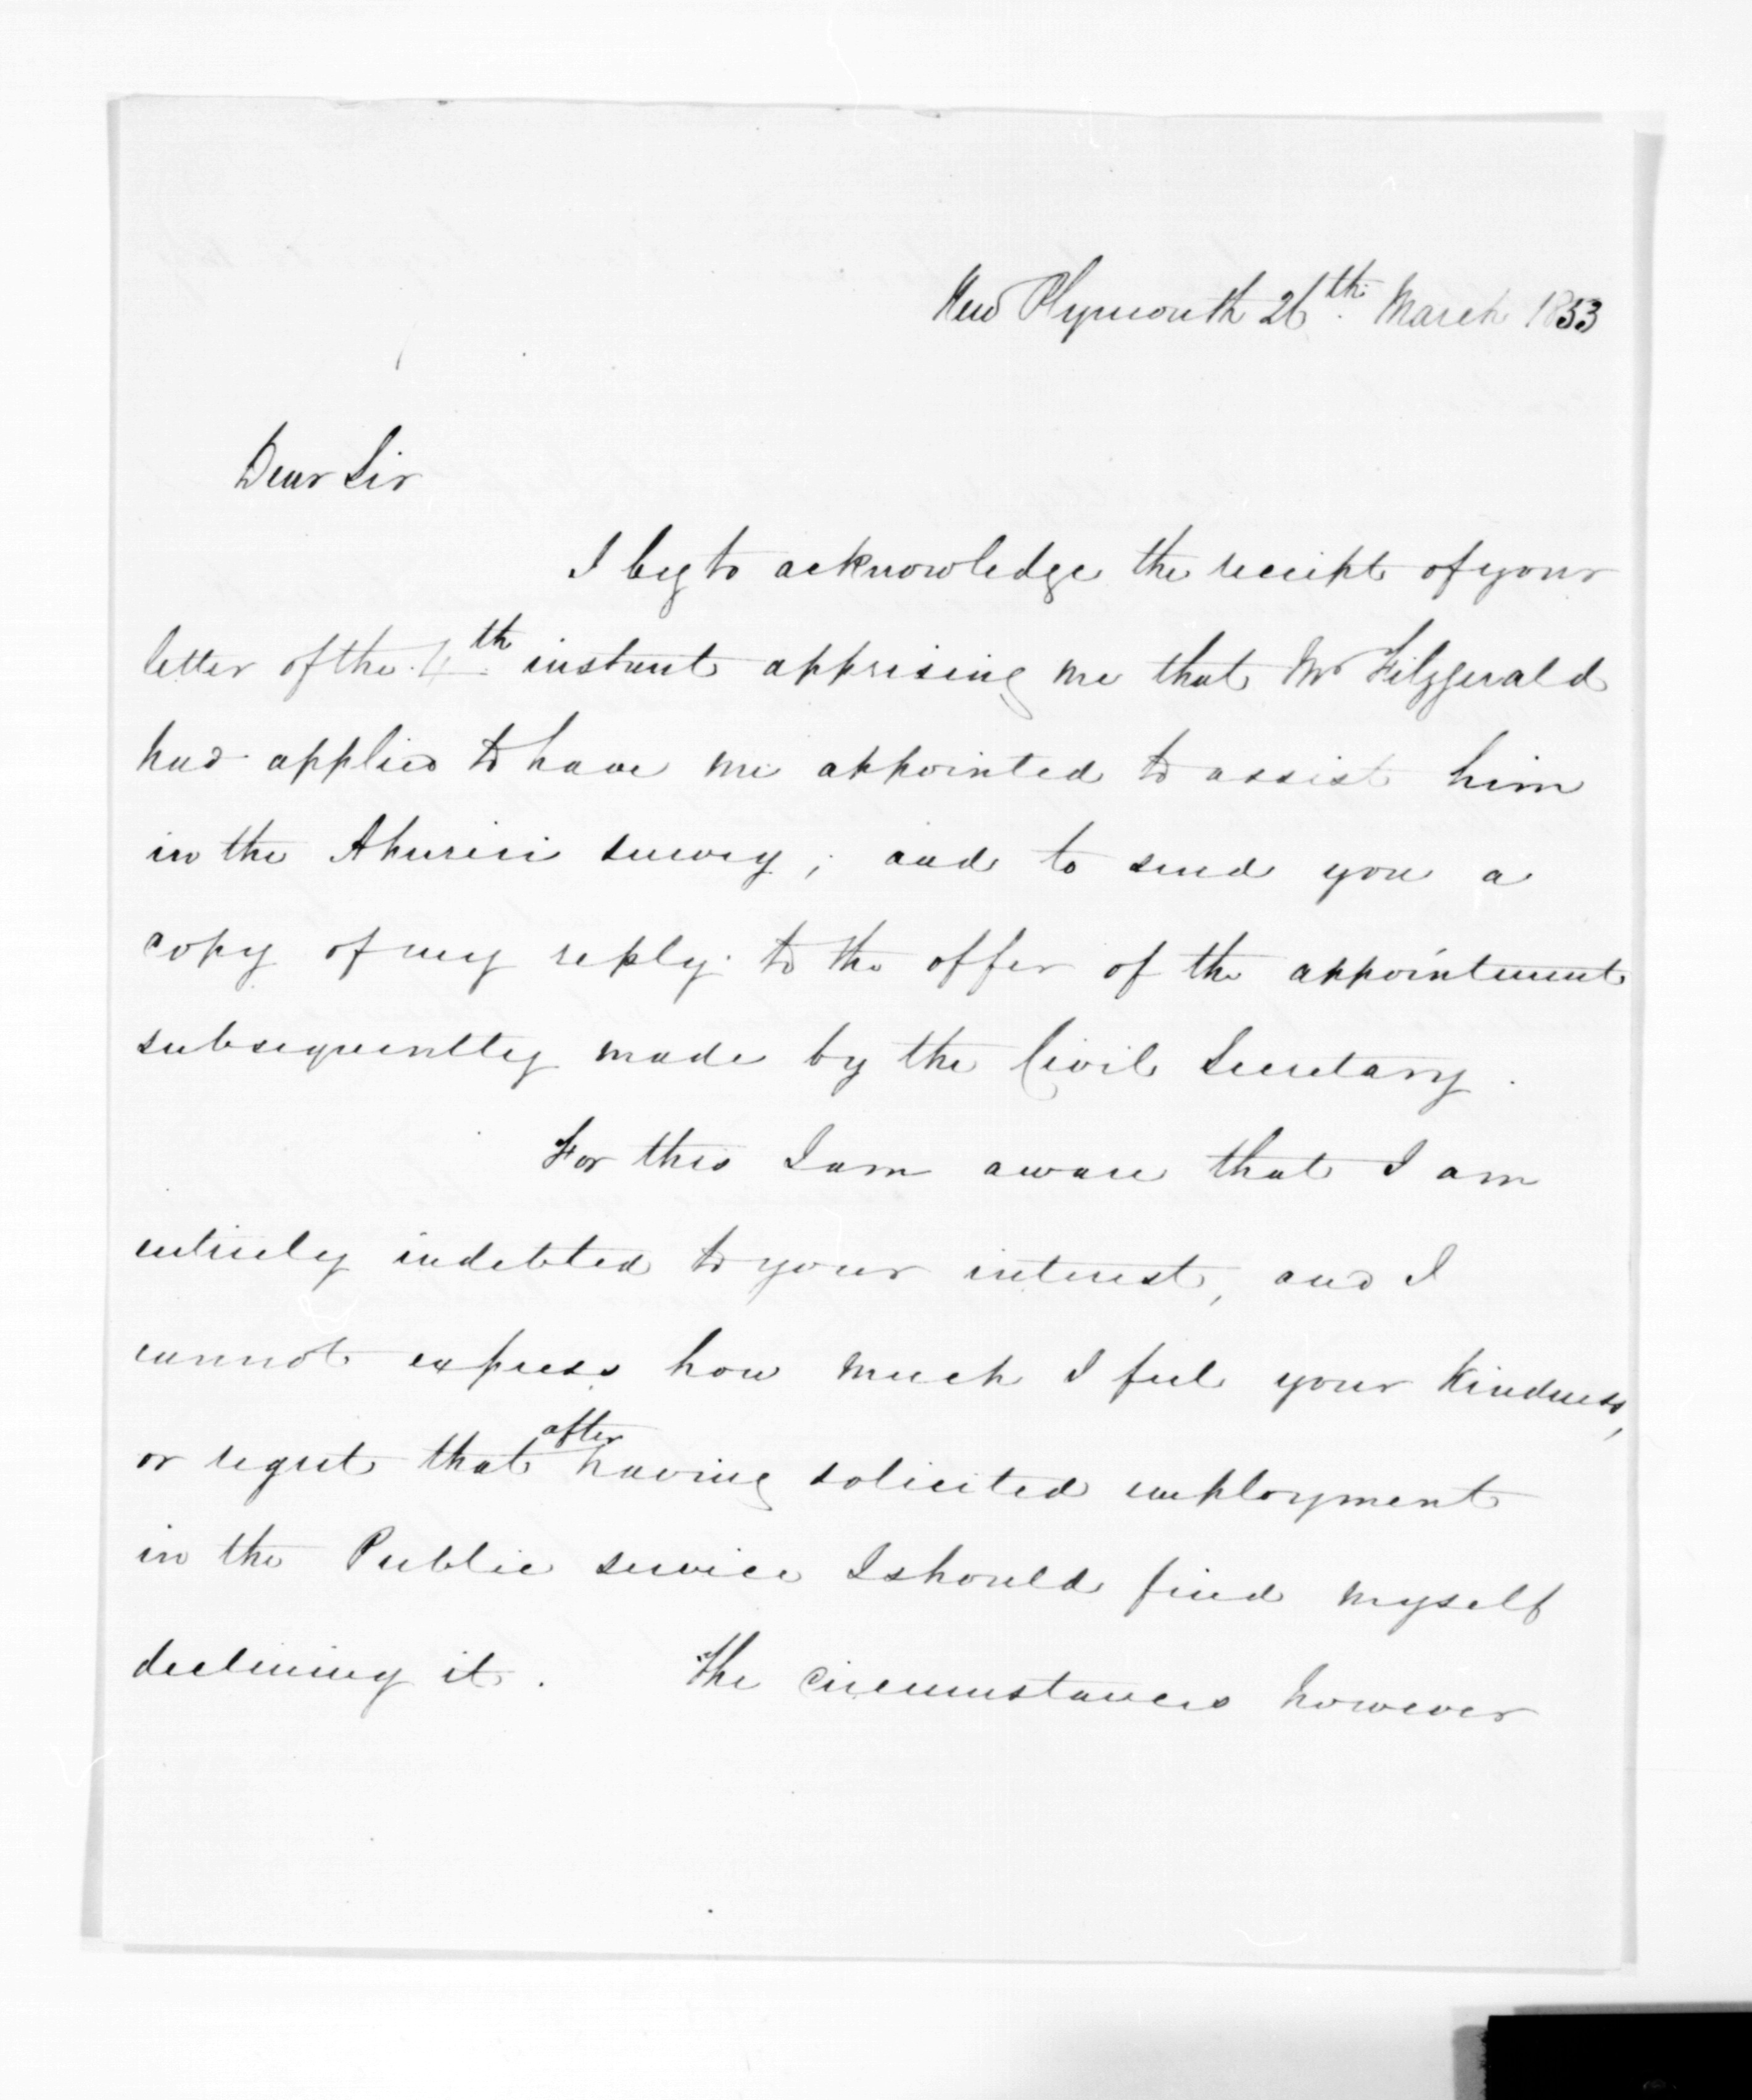 New Plymouth 26th. March 1853
Dear Sir
I beg to acknowledge the receipt of your
letter of the 4th instant apprising me that Mr Fitzgerald
had applied to have me appointed to assist him
in the Ahuriri survey; and to send you a
copy of my reply to the offer of the appointment
subsequently made by the Civil Secretary.
For this I am aware that I am
entirely indebted to your interest, and I
cannot express how much I feel your kindness,
or regret that after having solicited employment
in the Public service I should find myself
declining it. The circumstances however